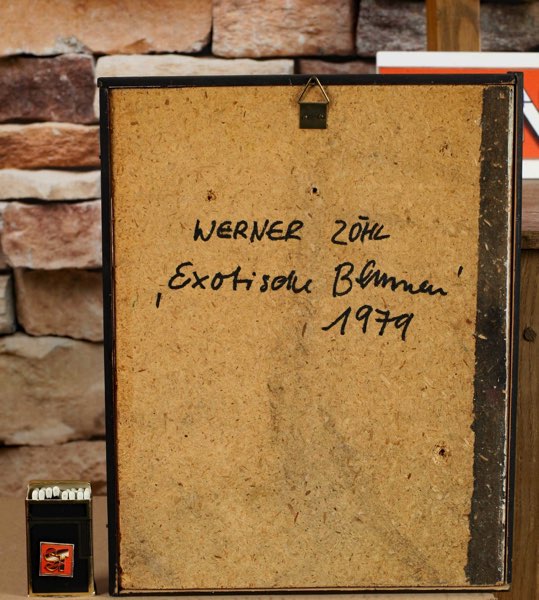 WERNER ZÖHL
‚Exotische Blumen'
1979